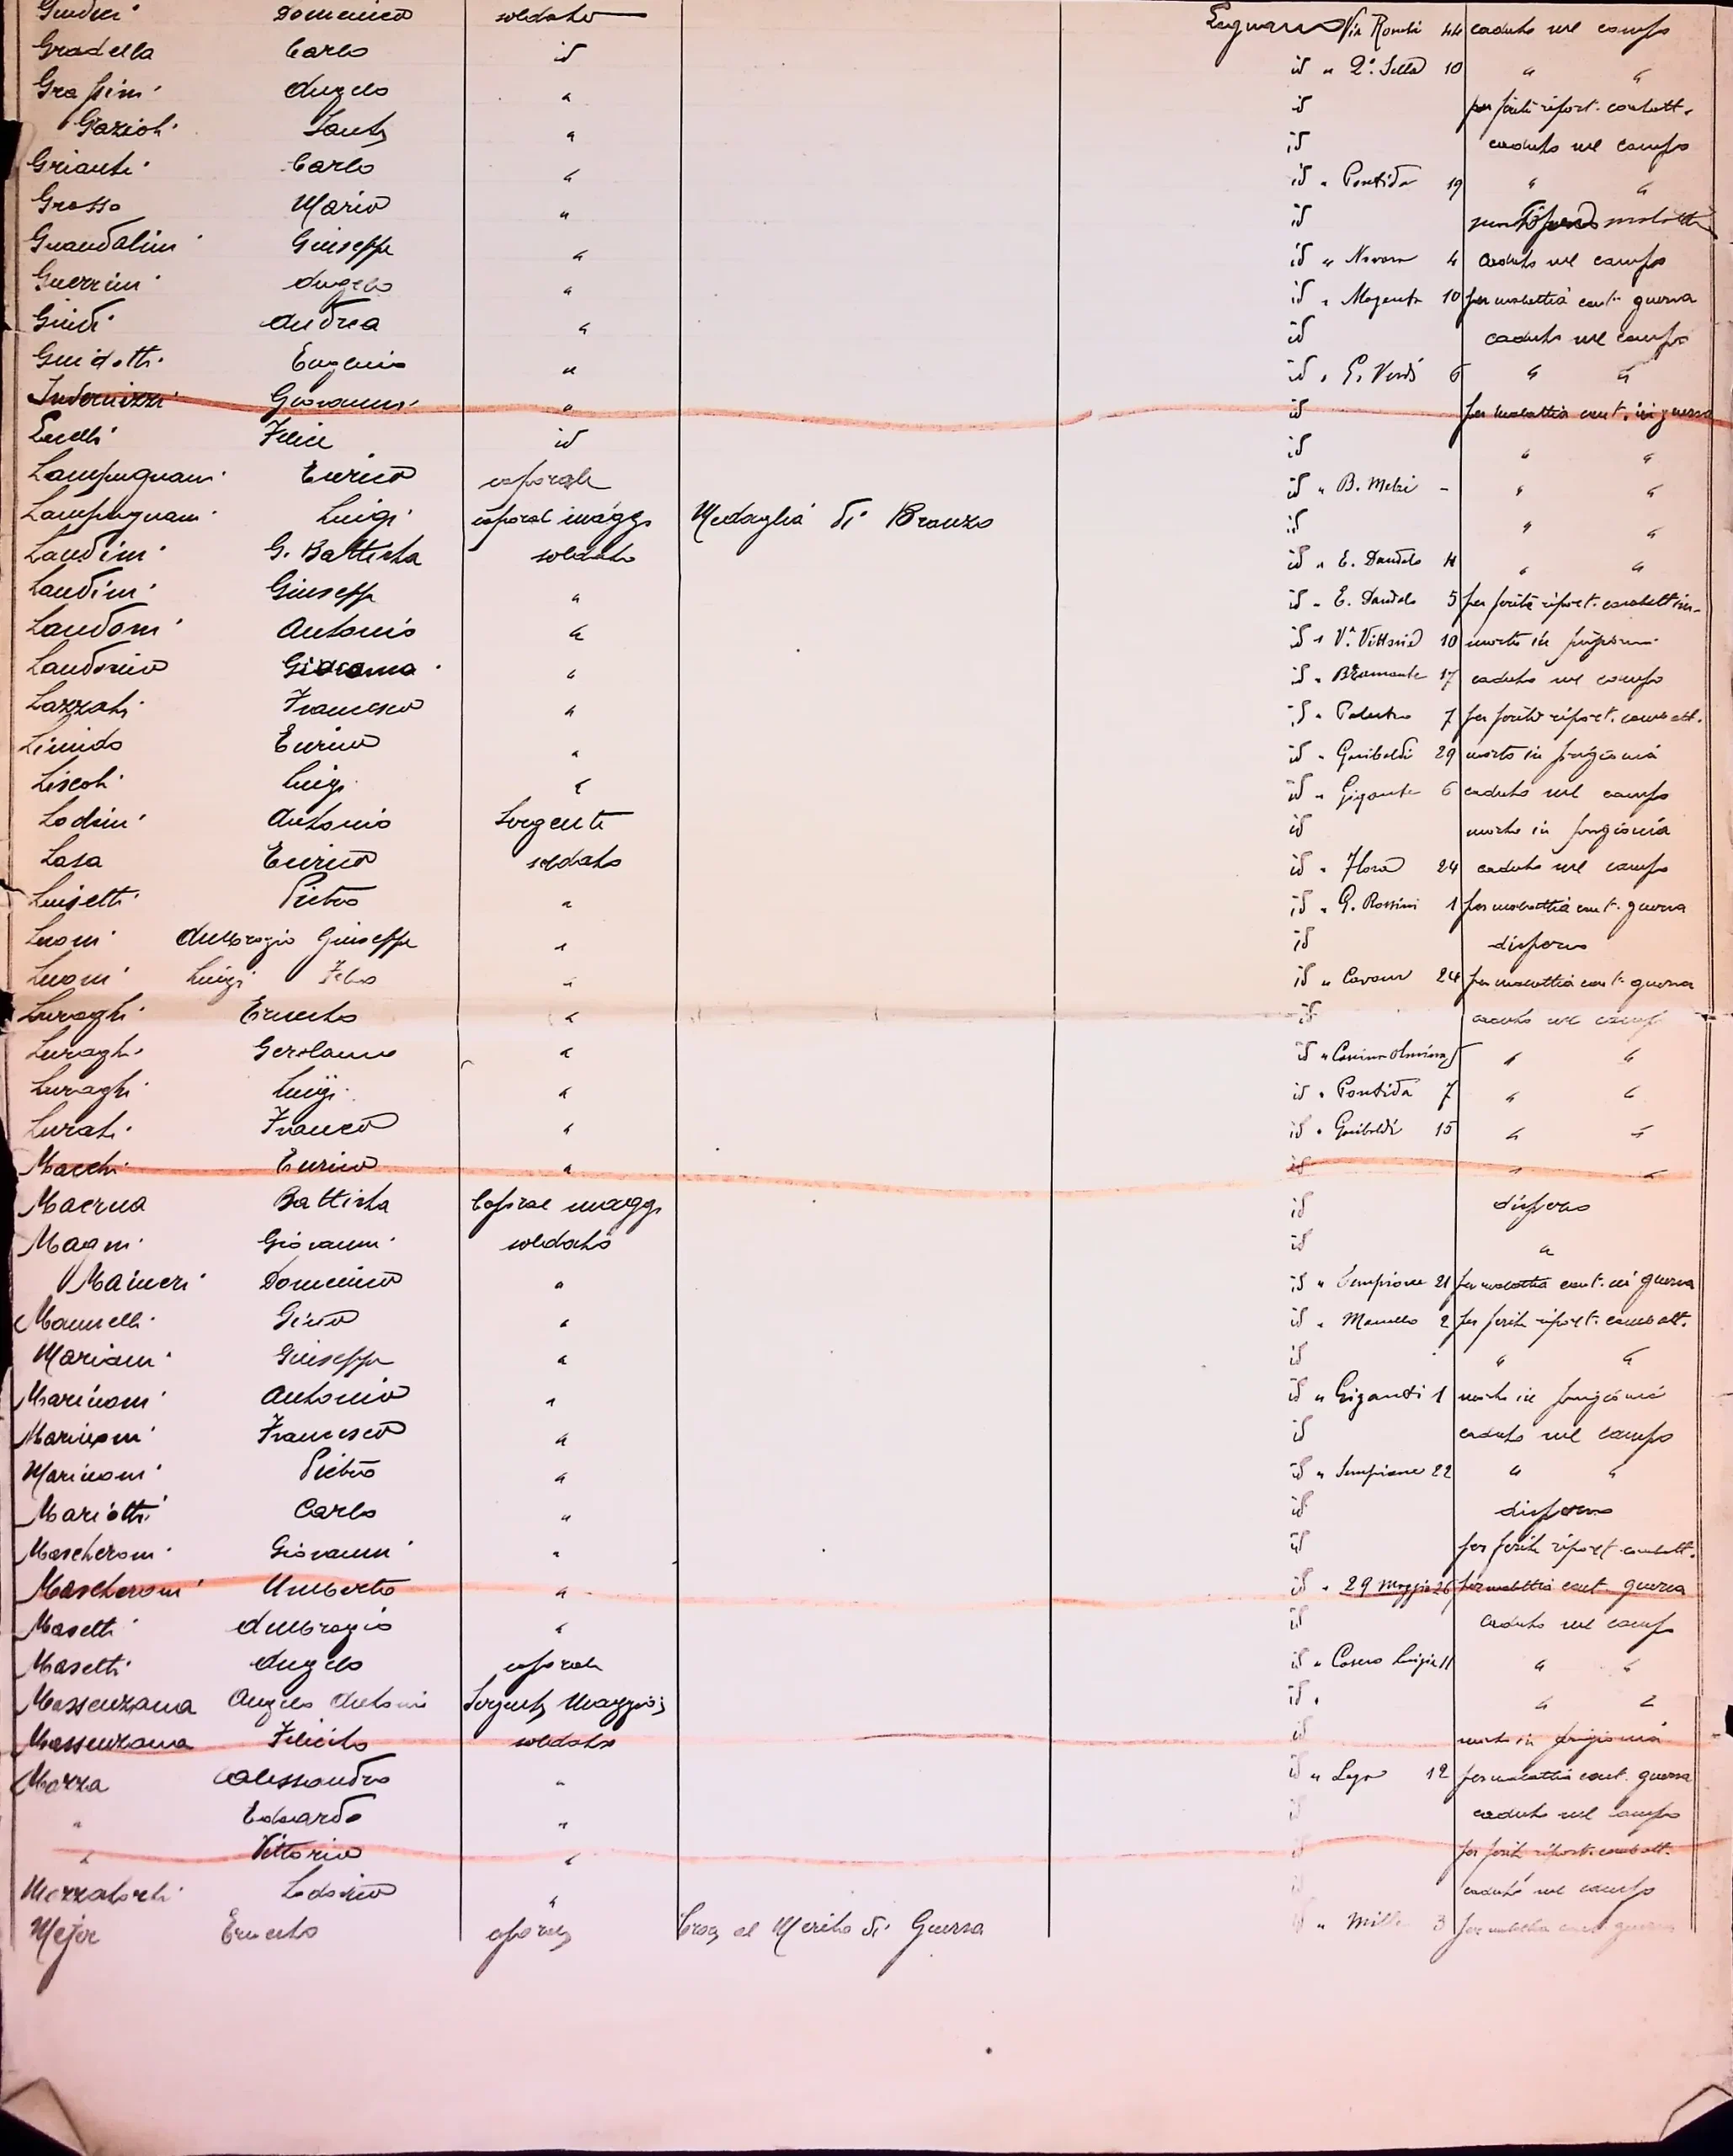 Giudici Domenico soldato Legnano Via Ronchi 44 caduto nel campo
Gradella Carlo id id " Q. Sella 10 " "
Grassini Angelo " id per ferite riport. combatt.
Grazioli Santo " id caduto nel campo
Grianti Carlo " id " Pontida 19 " "
Grosso Mario " id
Guandalini Giuseppe " id " Novara 4 caduto nel campo
Guerrini Angelo " id " Magenta 10 per malattia cont. guerra
Guidi Andrea " id caduto nel campo
Guidotti Eugenio " id " G. Verdi 6 " "
Invernizzi Giovanni " id per malattia cont. in guerra
Felice id id " "
Lampugnani Enrico caporale id " B. Melzi - " "
Lampugnani Luigi caporal magg. Medaglia di Bronzo id " "
Landini G. Battista soldato id " E. Dandolo " "
Landini Giuseppe " id " E. Dandolo 5 per ferite riport. combattim.
Landoni Antonio " id " Va. Vittoria 10 morto in prigionia
Landonio Giacomo " id " Bramante 17 caduto nel campo
Lazzati Francesco " id " Palestro 7 per ferite riport. combatt.
Limido Enrico " id " Garibaldi 29 morto in prigionia
Liscoli Luigi " id " Giganti 6 caduto nel campo
Lodini Antonio Sergente id morto in prigionia
Losa Enrico soldato id " Flora 24 caduto nel campo
Luisetti Pietro " id " G. Rossini 1 per malattia cont. guerra
Luoni Ambrogio Giuseppe " id disperso
Luoni Luigi " id " Cavour 24 per malattia cont. guerra
Luraghi Ernesto " id caduto nel campo
Luraghi Gerolamo " id " Cascina Olmina 5 " "
Luraghi Luigi " id " Pontida 7 " "
Lurati Franco " id " Garibaldi 15 " "
Macchi Enrico " id " "
Macrua Battista Caporal magg. id disperso
Magni Giovanni soldato id "
Maineri Domenico " id " Sempione 21 per malattia cont. in guerra
Mannelli Gino " id " Mamello 2 per ferite riport. combatt.
Mariani Giuseppe " id " "
Marinoni Antonio " id " Giganti 1 morto in prigionia
Marinoni Francesco " id caduto nel campo
Marinoni Pietro " id " Sempione 22 " "
Mariotti Carlo " id disperso
Mascheroni Giovanni " id per ferite riport. combatt.
Mascheroni Umberto " id " 29 Maggio 26 per malattia cont. guerra
Masetti Ambrogio " id caduto nel campo
Masetti Angelo caporale id " Casero Luigia 11 " "
Massenzana Angelo Antonio Sergente Maggior id " "
Massenzana Felicito soldato id morto in prigionia
Mazza Alessandro " id " Lega 12 per malattia cont. guerra
" Edoardo " id caduto nel campo
" Vittorio " id per ferite riport. combatt.
Mezzatorti Lodovico " id caduto nel campo
Mejor Ernesto caporale Croce al Merito di Guerra id " Mille 3 per malattia cont. guerra